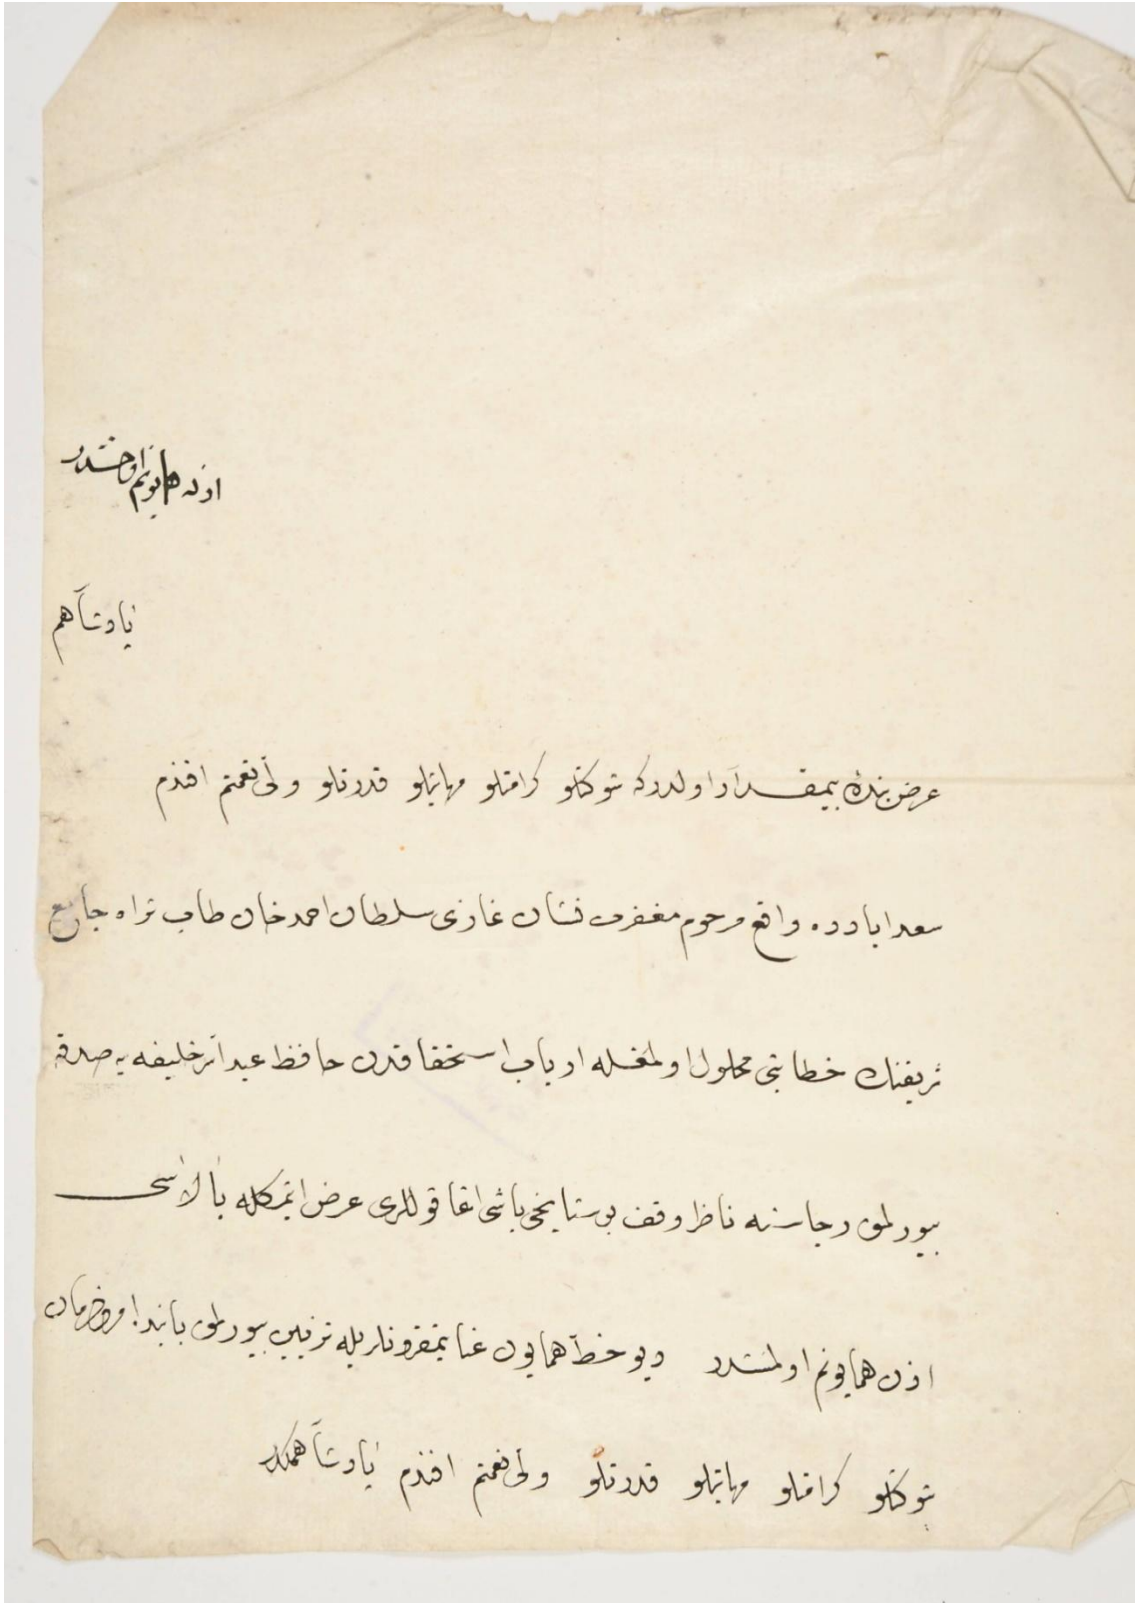 اذن همايونم اولمشدر
پادشاهم
عرض بنده بيمقدار اولدركه شوكتلو كرامتلو مهابتلو قدرتلو ولى نعمتم افندم
سعداباده واقع مرحوم مغفرت نشان غازى سلطان احمد خان طاب ثراه جامع
شريفنك خطابتى محلول اولمغله ارباب استحقاقدن حافظ عبدالله خليفه يه صدقه
بيورلمق رجاسنه ناظر وقف بوستانجى باشى اغا قوللرى عرض ايتمكله بالاسى
اذن همايونم اولمشدر ديو خط همايون عنايتمقرونلريله تزيين بيورلمق بابنده امر و فرمان
شوكتلو كرامتلو مهابتلو قدرتلو ولى نعمتم افندم پادشاهمكدر